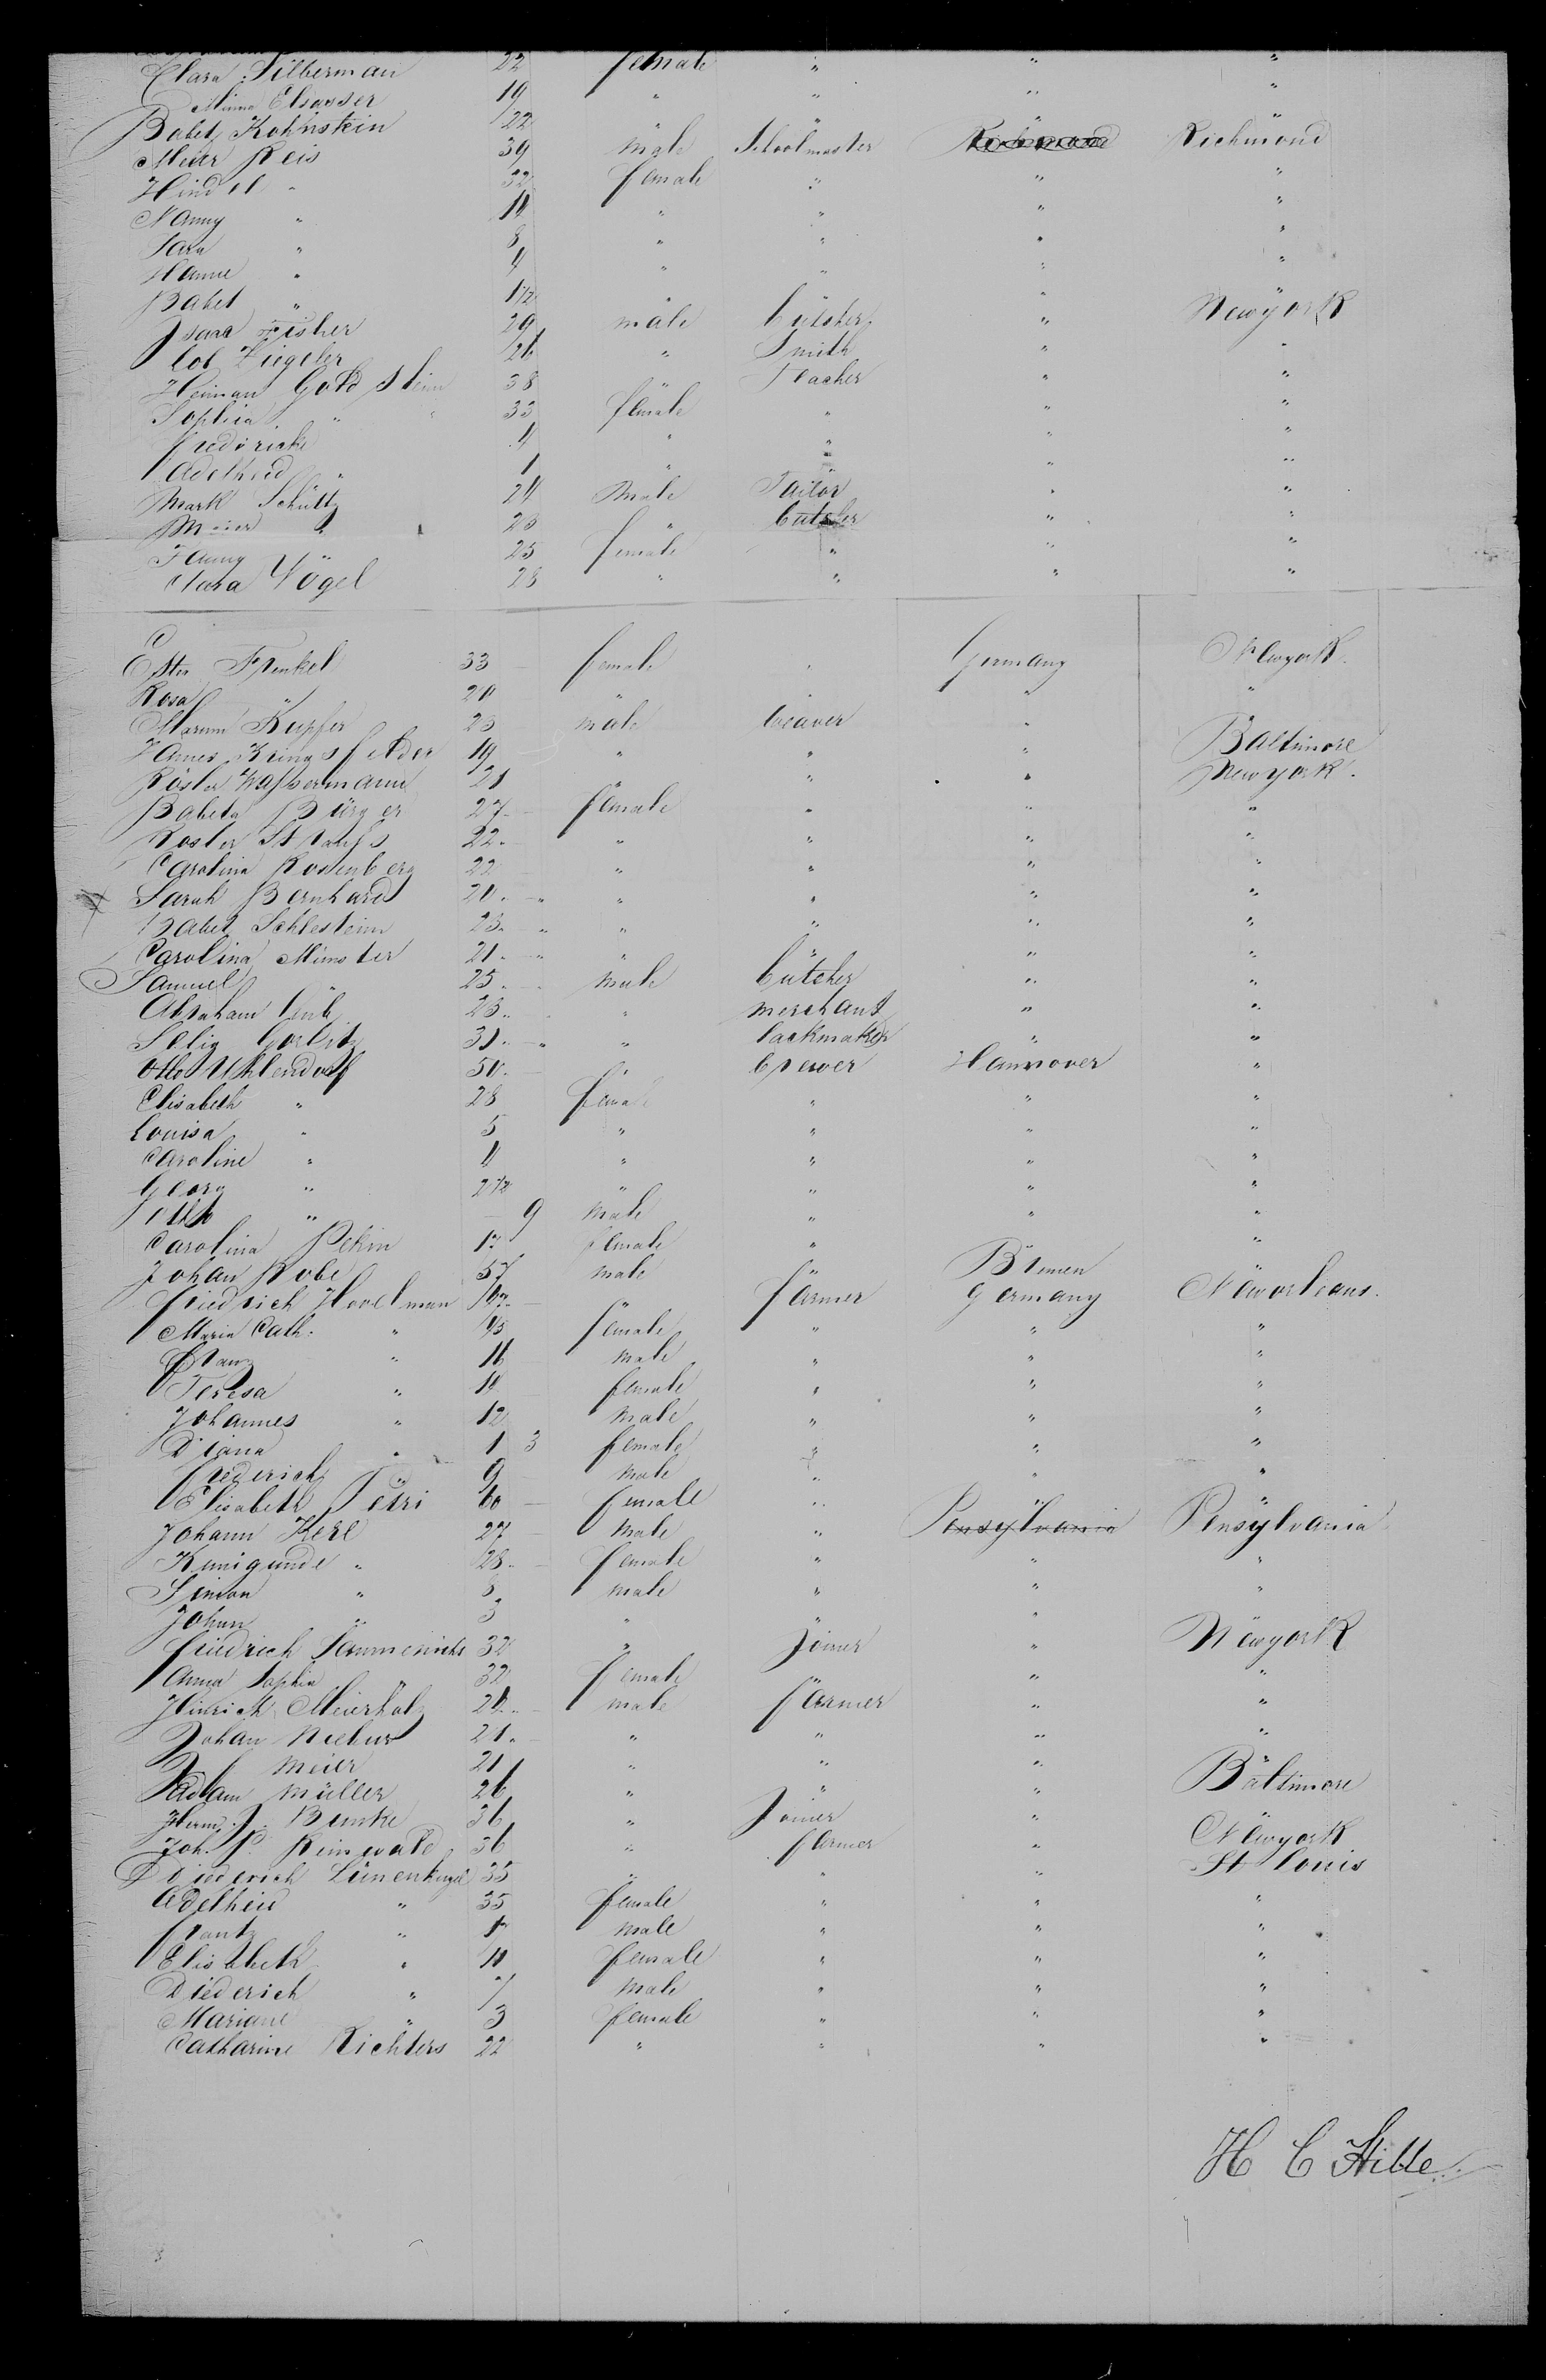 Clara Silberman 22 female " " "
Minna Elsasser 19 " " " "
Babet Kohnstein 22 " " " "
Meier Reis 39 male Schoolmaster Richmond Richmond
Hindel " 32 female " " "
Nanny " 11 " " " "
Sara " 8 " " " "
Hanne " 4 " " " "
Babet " 1 1/2 " " " "
Isaac Fisher 29 male bütsher " Newyork
Lob Ziegeler 26 " Smith " "
Heiman Goldstein 38 " Teacher " "
Sophia " " 33 female " " "
Fredericke 4 " " " "
Adelheid " 1 " " " "
Mark Schültz 24 male Tailor " "
Meier " 20 " bütsher " "
Fanny " 25 female " " "
Clara Vogel 28 " " " "
Ester Frenkel 33 female " Germany Newyork
Rosa " 20 " " " "
Marum Kupfer 23 male weaver " "
Hannes Kringsfelder 19 " " " Baltimore
Rösler Wassermann 21 " " " Newyork
Babeta Bürger 27 female " " "
Rosler Strauss 22 " " " "
Carolina Rosenberg 22 " " " "
Sarah Bernhard 20 " " " "
Babet Schlesteim 23 " " " "
Carolina Münster 21 " " " "
Samuel 25 male bütcher " "
Abraham 23 " merchant " "
Selig Gorlitz 31 " Sackmaker " "
Otto Uhlendorf 50 " brewer Hannover "
Elisabeth " 28 female " " "
Louisa " 5 " " " "
Caroline " 4 " " " "
Georg " 2 1/2 " " " "
Otto " 9 male " " "
Carolina Rehm 17 female " " "
Johan Robe 57 male " Bremen "
Friedrich Hovelman 47 " farmer Germany Neworleans
Maria Cath. " 45 female " " "
Franz " 16 male " " "
Teresa " 14 female " " "
Johannes " 12 male " " "
Diana " 1 3 female " " "
Frederich 9 male " " "
Elisabeth Petri 60 female " " "
Johann Kerl 27 male " Pensylvania Pensylvania
Kunigunde " 28 female " " "
Simon " 8 male " " "
Johan " 3 " " " "
Friedrich Sammerichs 32 " Joiner " Newyork
Anna Sophia " 32 female " " "
Hinrich Meierholz 24 male farmer " "
Johan Niebur 21 " " " "
J. Meier 21 " " " "
Adam Müller 26 " " " Baltimore
Herm. J. Bunke 36 " Joiner " "
Joh. P. Reinwald 36 " farmer " Newyork
Diederich Lünenkugel 35 " " " St Louis
Adelheid " 35 female " " "
Frantz " 17 male " " "
Elisabeth " 11 female " " "
Diederich " 7 male " " "
Mariane " 3 female " " "
Catharine Richters 22 " " " "
H C Stille